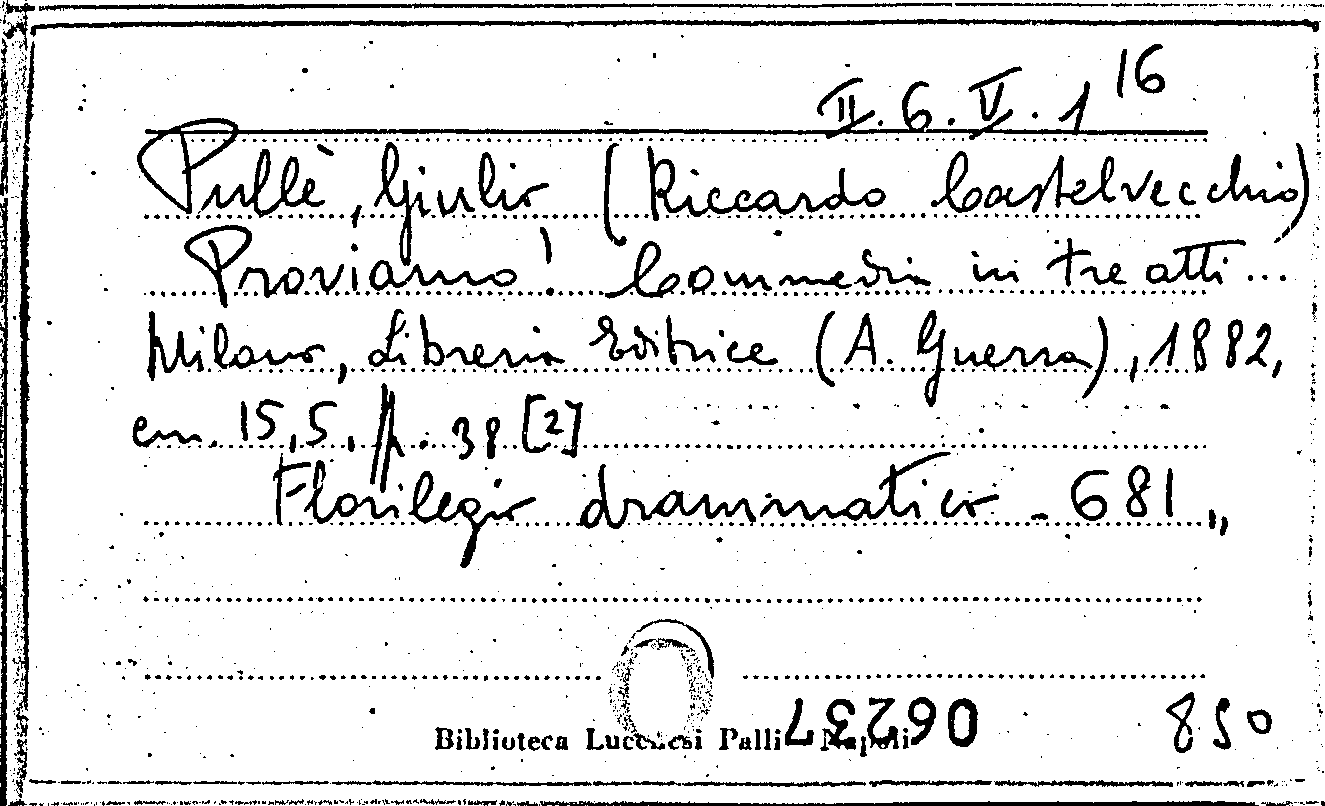 II. 6. V. 1 16
Pullè, Giulio (Riccardo Castelvecchio)
Proviamo! Commedia in tre atti...
Milano, Libreria Editrice (A. Guerra), 1882,
cm. 15,5, p. 38 [2]
Florilegio drammatico - 681,,
062737
Biblioteca Lucchesi Palli Napoli
850